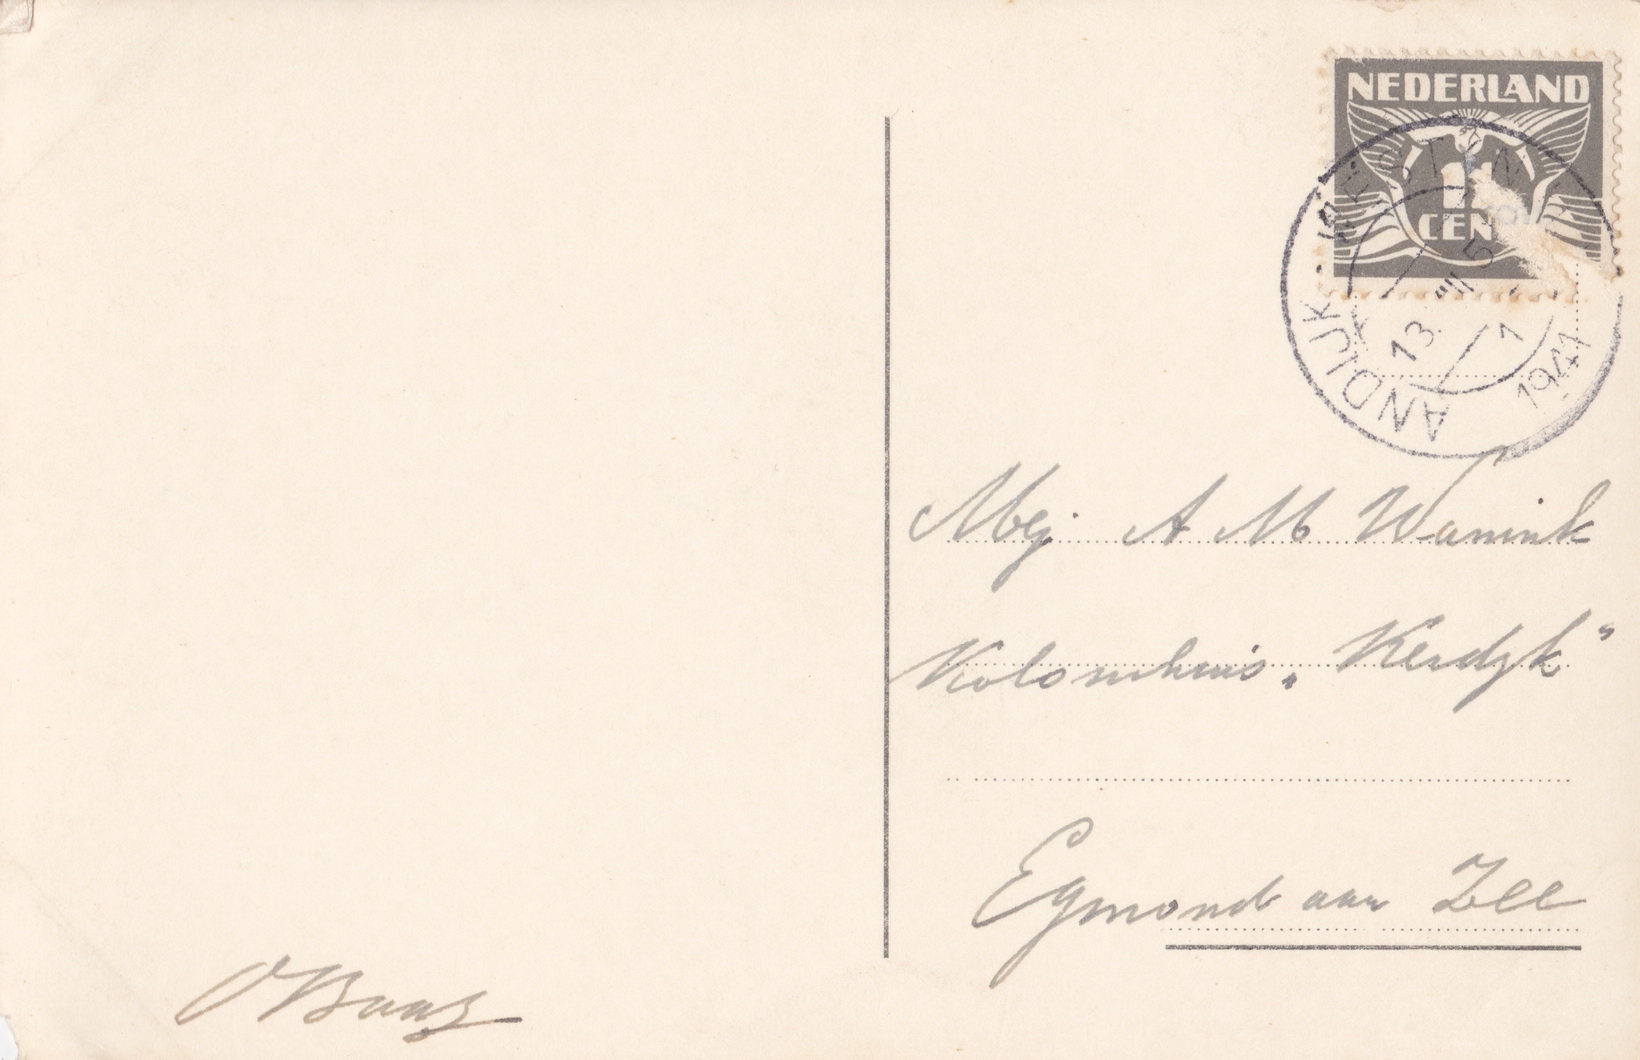 NEDERLAND
CEN
ANDIJK
13 VII 5
1941
Mej. A M Wanink
Koloniehuis „Kerdyk"
Egmond aan Zee